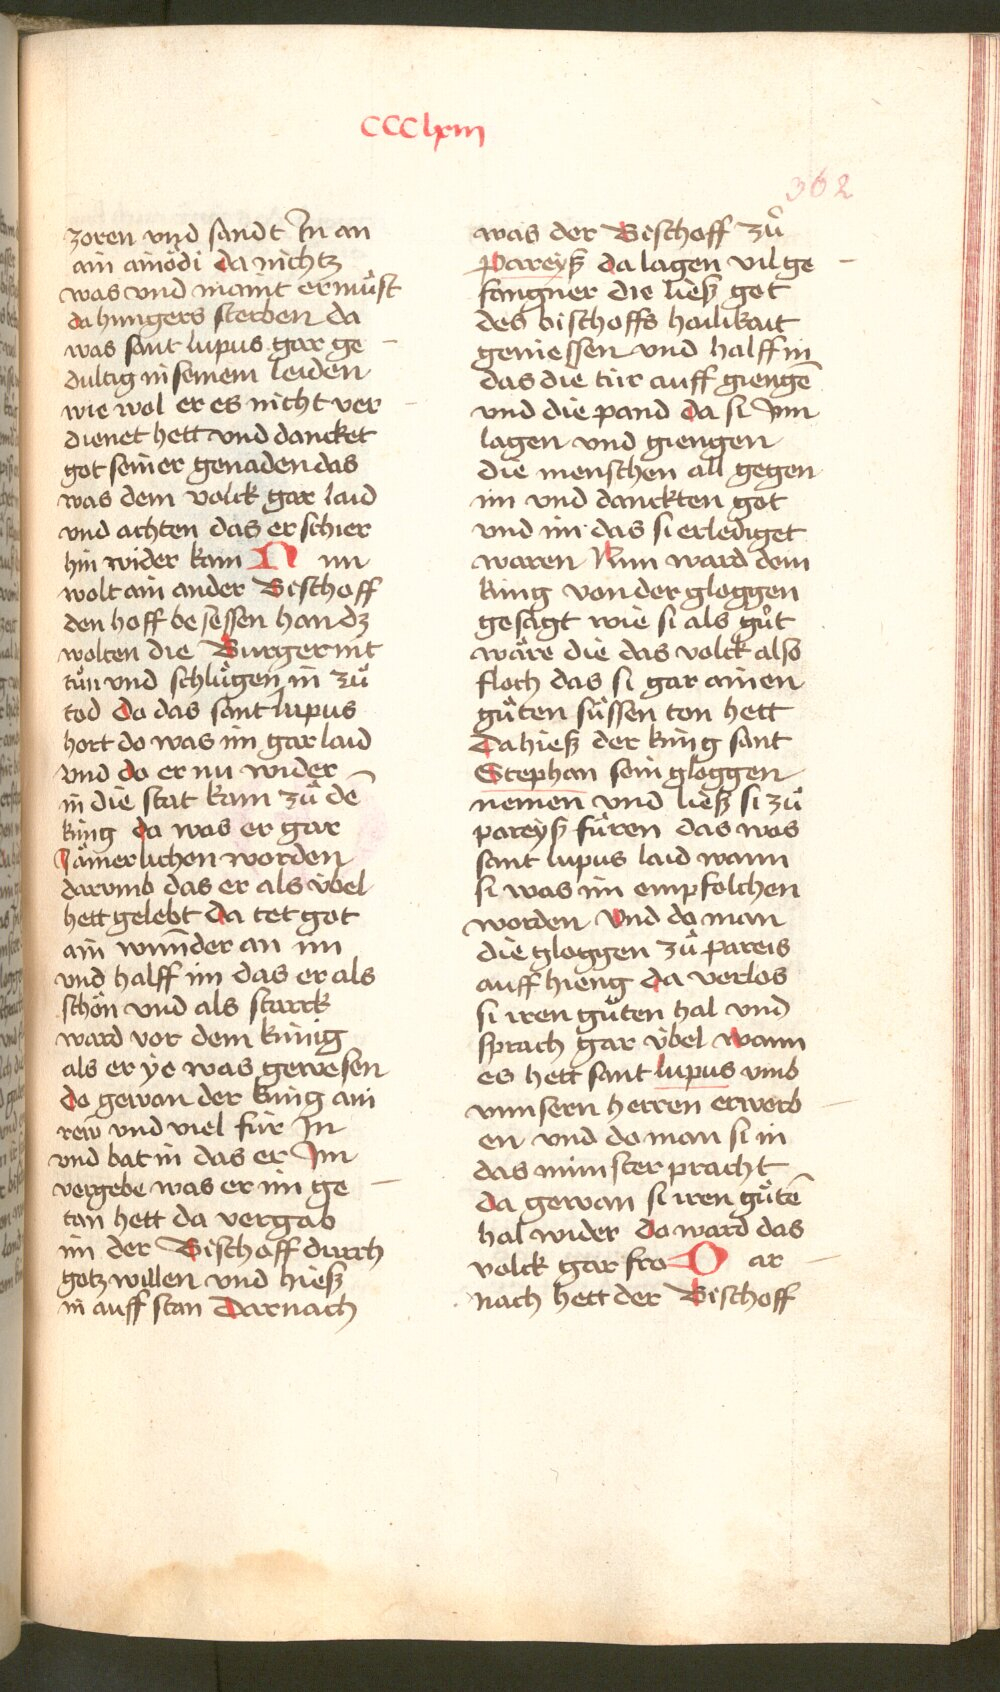 CCClxiii
362
zoren vnd sandt In an
ain ainödi da nichtz
was vnd maint er müst
da hungers sterben da
was sant lupus gar ge
dultig in seinem leiden
wie wol er es nicht ver
dienet hett vnd dancket
got seiner genaden das
was dem volck gar laid
vnd achten das er schier
hin wider kam Nun
wolt ain ander Bischoff
den hoff besessen han dz
wolten die Burger nit
tůn vnd schlůgen in zů
tod do das sant lupus
hort do was im gar laid
vnd do er nu wider
in die stat kam zů dē
king da was er gar
Jämerlichen worden
darvmb das er als vbel
hett gelebt da tet got
ain wunnder an im
vnd halff im das er als
schön vnd als starck
ward vor dem künig
als er ye was gewesen
do gewan der king ain
rew vnd viel für In
vnd bat in das er Im
vergebe was er im ge
tan hett da vergab
im der Bischoff durch
gotz willen vnd hieß
in auff stan Darnach
was der Bischoff zů
Pareyß da lagen vil ge
fangner die ließ got
des bischoffs hailikait
geniessen vnd halff in
das die tür auff giengē
vnd die pand da si Inn
lagen vnd giengen
die menschen all gegen
im vnd danckten got
vnd im das si erlediget
waren Nun ward dem
king von der gloggen
gesagt wie si als gůt
wäre die das volck also
floch das si gar ainen
gůten süssen ton hett
Da hieß der king sant
Stephan sein gloggen
nemen vnd ließ si zů
pareyß füren das was
sant lupus laid wann
si was im empfolchen
worden Vnd do man
die gloggen zů pareis
auff hieng da verlos
si iren gůten hal vnd
sprach gar vbel wann
es hett sant lupus vmb
vnnsern herren erworb
en vnd do man si in
das münster pracht
da gewan si iren gůtē
hal wider do ward das
volck gar fro Dar
nach hett der Bischoff